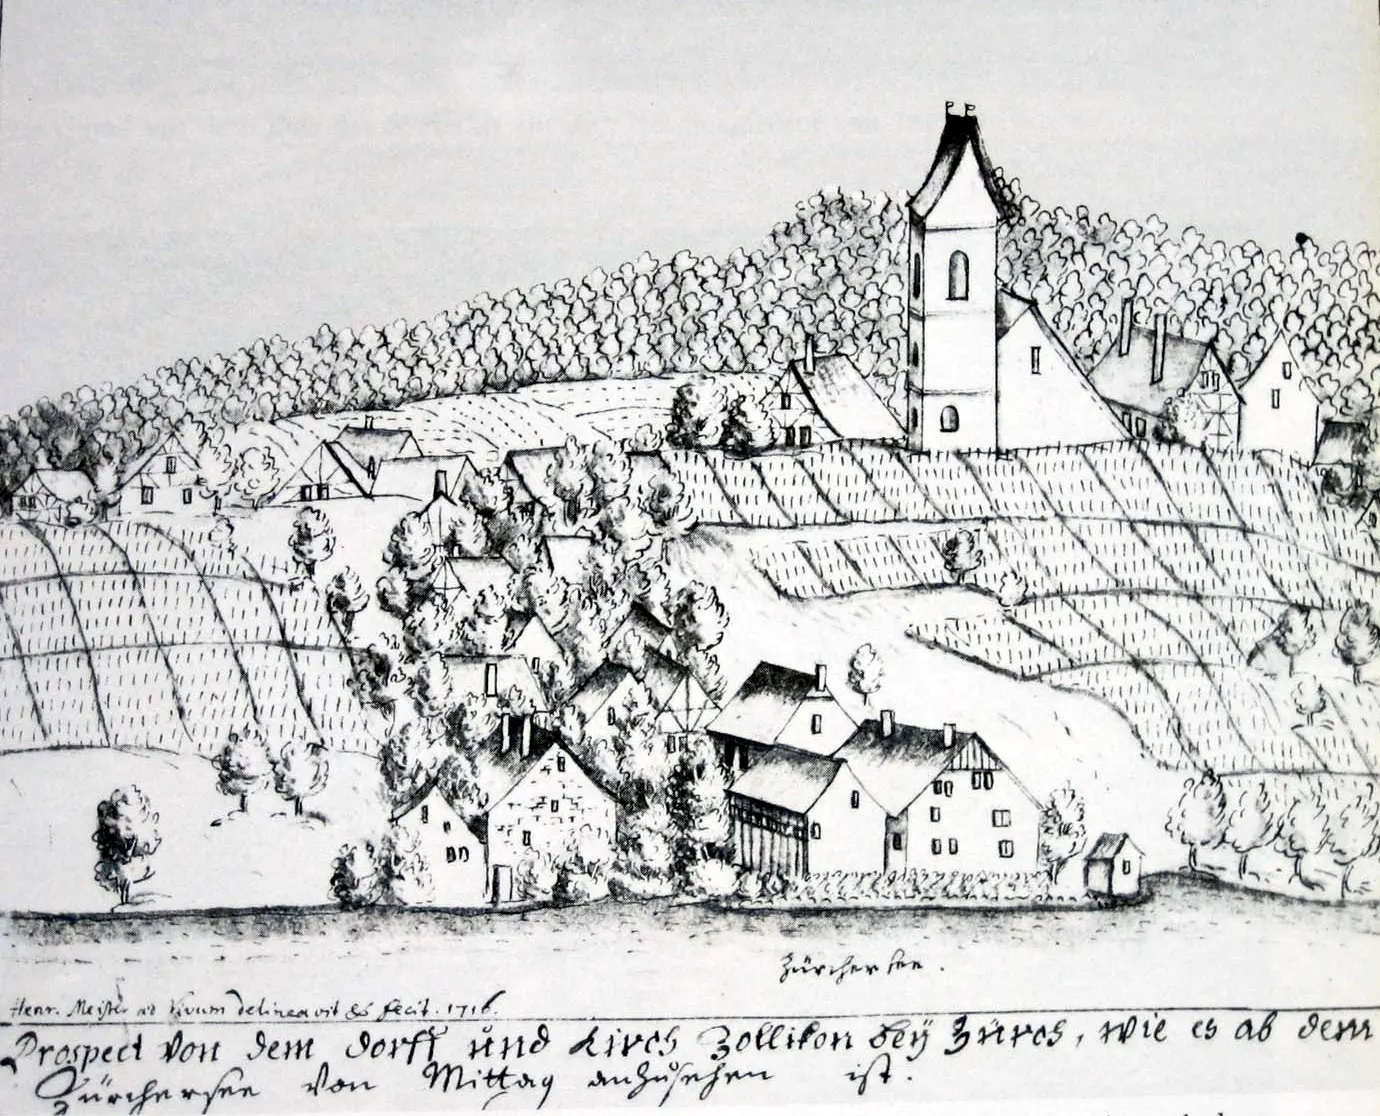 Zürchersee.
Henr. Meister ad vivum delineavit et fecit. 1716.
Prospect von dem dorff und Kirch Zollikon bey Zürch, wie es ab dem
Zürchersee von Mittag anzusehen ist.